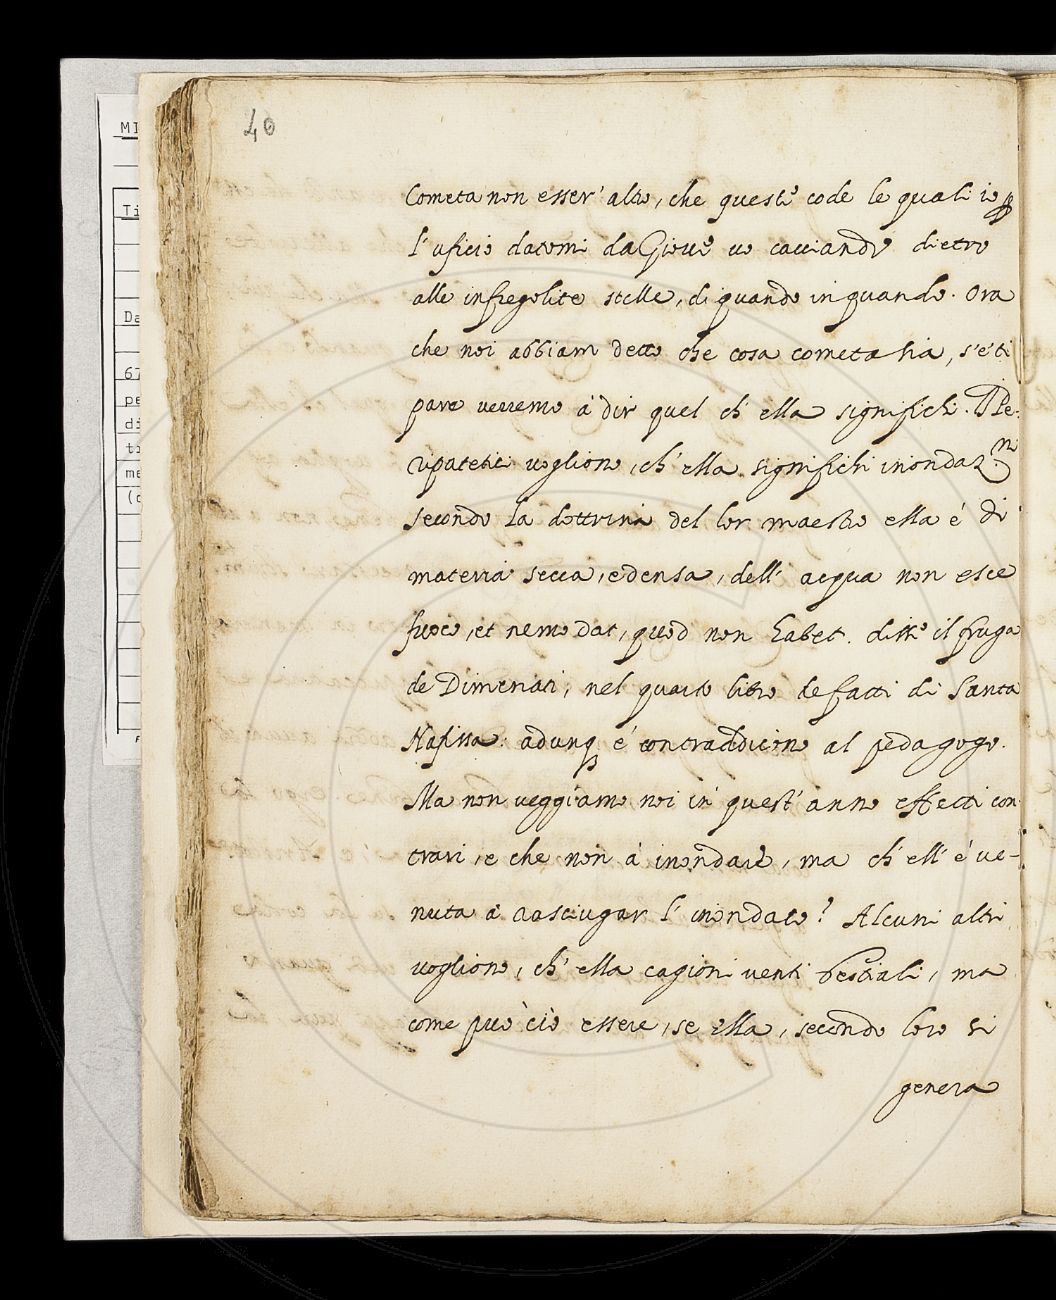 40
Cometa non esser' altro, che queste code le quali io p
l'uficio datomi da Giove vo cacciando dietro
alle infregolite stelle, di quando in quando. Ora
che noi abbiam detto che cosa cometa sia, s'è ti
pare verremo à dir quel ch' ella significhi. I Pe-
ripatetici vogliono, ch' ella significhi inondaz.n
secondo la dottrina del lor maestro ella é di
materia secca, e densa, dell' acqua non esce
fuoco, et nemo dat, quod non habet. disse il fruga
de Dimenati, nel quarto libro de fatti di Santa
Nafissa: adunq é contraddicione al pedagogo.
Ma non veggiamo noi in quest' anno effetti con
trari, e che non à inondare, ma ch' ell' é ve-
nuta à rasciugar l' inondato? Alcuni altri
vogliono, ch' ella cagioni venti bestiali, ma
come può ciò essere, se ella, secondo loro si
genera
MI
Ti
Da
67
pe
di
ti
me
(c